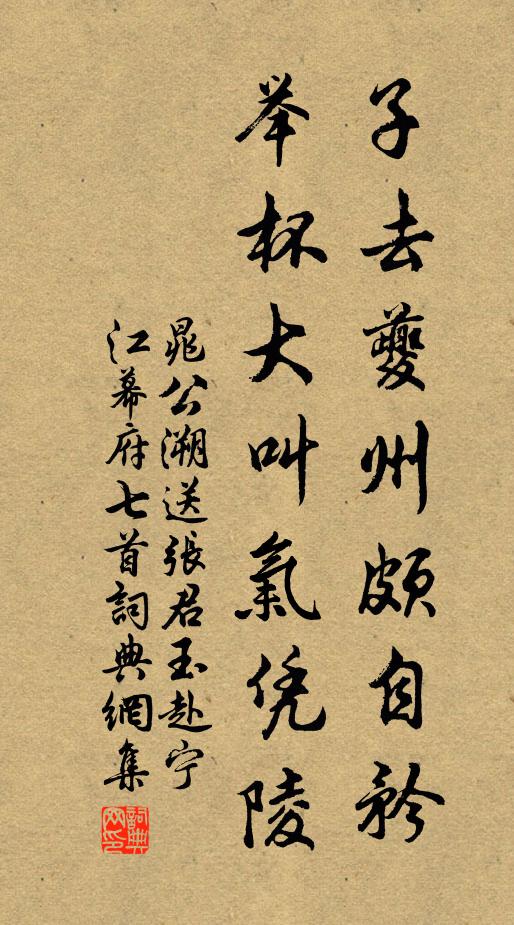 子去夔州頗自矜
举杯大叫氣凭陵
晁公溯送張君玉赴宁
江幕府七首詞典網集
詞典
网印